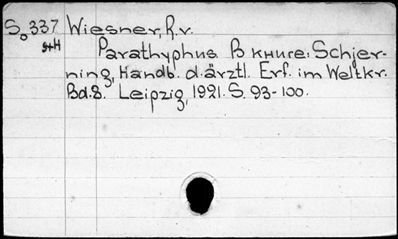 So337 Wiesner, R.v.
Parathyphus. В книге: Schjer-
ning, Handb. d. ärztl. Erf. im Weltkr.
Bd.8. Leipzig, 1921. S. 93-100.